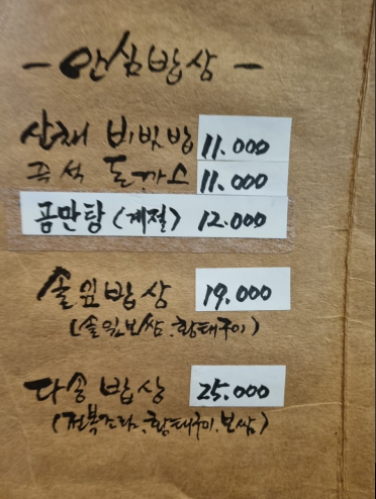 - 안심밥상 -
산채 비빔밥 11.000
즉석 돈까스 11.000
곰만탕 (계절) 12.000
솔잎밥상 19.000
(솔잎보쌈.황태구이)
다송밥상 25.000
(전복조림.황태구이.보쌈)